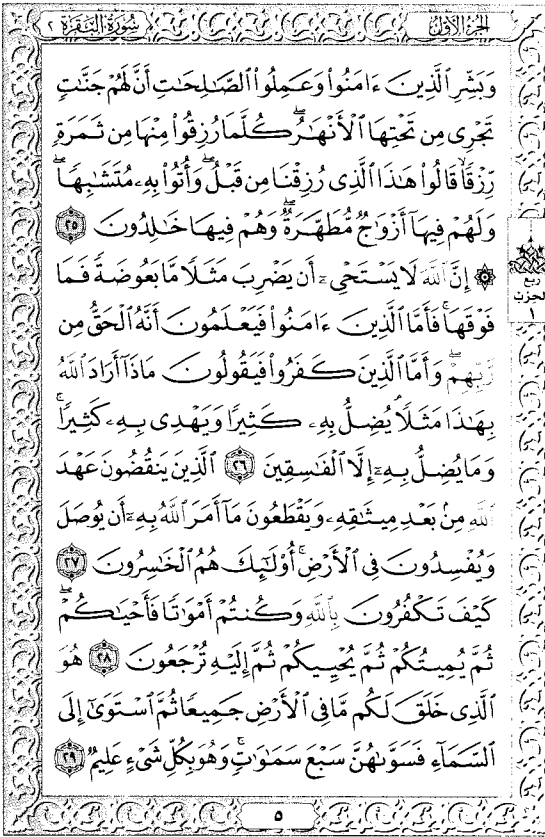 سُورَةُ البَقَرَةِ ٢
الجُزْءُ الأَوَّلُ
وَبَشِّرِ ٱلَّذِينَ ءَامَنُوا۟ وَعَمِلُوا۟ ٱلصَّـٰلِحَـٰتِ أَنَّ لَهُمْ جَنَّـٰتٍ
تَجْرِى مِن تَحْتِهَا ٱلْأَنْهَـٰرُ ۖ كُلَّمَا رُزِقُوا۟ مِنْهَا مِن ثَمَرَةٍ
رِّزْقًا ۙ قَالُوا۟ هَـٰذَا ٱلَّذِى رُزِقْنَا مِن قَبْلُ ۖ وَأُتُوا۟ بِهِۦ مُتَشَـٰبِهًا ۖ
وَلَهُمْ فِيهَآ أَزْوَٰجٌ مُّطَهَّرَةٌ ۖ وَهُمْ فِيهَا خَـٰلِدُونَ ٢٥
۞ إِنَّ ٱللَّهَ لَا يَسْتَحْىِۦٓ أَن يَضْرِبَ مَثَلًا مَّا بَعُوضَةً فَمَا
فَوْقَهَا ۚ فَأَمَّا ٱلَّذِينَ ءَامَنُوا۟ فَيَعْلَمُونَ أَنَّهُ ٱلْحَقُّ مِن
رَّبِّهِمْ ۖ وَأَمَّا ٱلَّذِينَ كَفَرُوا۟ فَيَقُولُونَ مَاذَآ أَرَادَ ٱللَّهُ
بِهَـٰذَا مَثَلًا ۘ يُضِلُّ بِهِۦ كَثِيرًا وَيَهْدِى بِهِۦ كَثِيرًا ۚ
وَمَا يُضِلُّ بِهِۦٓ إِلَّا ٱلْفَـٰسِقِينَ ٢٦ ٱلَّذِينَ يَنقُضُونَ عَهْدَ
ٱللَّهِ مِنۢ بَعْدِ مِيثَـٰقِهِۦ وَيَقْطَعُونَ مَآ أَمَرَ ٱللَّهُ بِهِۦٓ أَن يُوصَلَ
وَيُفْسِدُونَ فِى ٱلْأَرْضِ ۚ أُو۟لَـٰٓئِكَ هُمُ ٱلْخَـٰسِرُونَ ٢٧
كَيْفَ تَكْفُرُونَ بِٱللَّهِ وَكُنتُمْ أَمْوَٰتًا فَأَحْيَـٰكُمْ ۖ
ثُمَّ يُمِيتُكُمْ ثُمَّ يُحْيِيكُمْ ثُمَّ إِلَيْهِ تُرْجَعُونَ ٢٨ هُوَ
ٱلَّذِى خَلَقَ لَكُم مَّا فِى ٱلْأَرْضِ جَمِيعًا ثُمَّ ٱسْتَوَىٰٓ إِلَى
ٱلسَّمَآءِ فَسَوَّىٰهُنَّ سَبْعَ سَمَـٰوَٰتٍ ۚ وَهُوَ بِكُلِّ شَىْءٍ عَلِيمٌ ٢٩
ربع
الحزب
١
٥